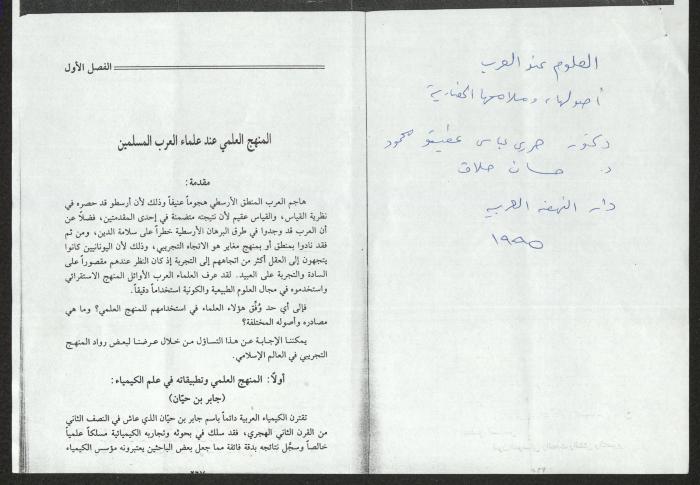 العلوم عند العرب
أصولها، وملامحها الحضارية
دكتور حربي عباس عطيتو محمود
د. حسان حلاق
دار النهضة العربية
١٩٩٥
الفصل الأول
المنهج العلمي عند علماء العرب المسلمين
مقدمة:
هاجم العرب المنطق الأرسطي هجوماً عنيفاً وذلك لأن أرسطو قد حصره في
نظرية القياس، والقياس عقيم لأن نتيجته متضمنة في إحدى المقدمتين، فضلاً عن
أن العرب قد وجدوا في طرق البرهان الأرسطية خطراً على سلامة الدين، ومن ثم
فقد نادوا بمنطق أو بمنهج مغاير هو الاتجاه التجريبي، وذلك لأن اليونانيين كانوا
يتجهون إلى العقل أكثر من اتجاههم إلى التجربة إذ كان النظر عندهم مقصوراً على
السادة والتجربة على العبيد. لقد عرف العلماء العرب الأوائل المنهج الاستقرائي
واستخدموه في مجال العلوم الطبيعية والكونية استخداماً دقيقاً.
فإلى أي حد وُفِّق هؤلاء العلماء في استخدامهم للمنهج العلمي؟ وما هي
مصادره وأصوله المختلفة؟
يمكننا الإجابة عن هذا التساؤل من خلال عرضنا لبعض رواد المنهج
التجريبي في العالم الإسلامي.
أولاً: المنهج العلمي وتطبيقاته في علم الكيمياء:
(جابر بن حيّان)
تقترن الكيمياء العربية دائماً باسم جابر بن حيّان الذي عاش في النصف الثاني
من القرن الثاني الهجري، فقد سلك في بحوثه وتجاربه الكيميائية مسلكاً علمياً
خالصاً وسجَّل نتائجه بدقة فائقة مما جعل بعض الباحثين يعتبرونه مؤسس الكيمياء